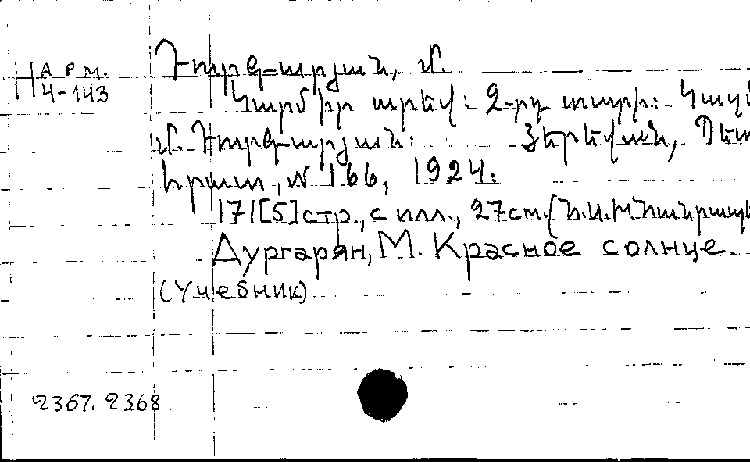 Н АРМ. 4-143
Դուրգարյան, Մ.
Կարմիր արեվ: 2-րդ տարի: Կազ
Մ. Դուրգարյան: Յերեվան, Պետ
հրատ, № 166, 1924.
171[5] стр., с илл., 27см. (Խ.Ս.Խ.Հանրապե
Дургарян, М. Красное солнце.
(Учебник)
2367. 2368